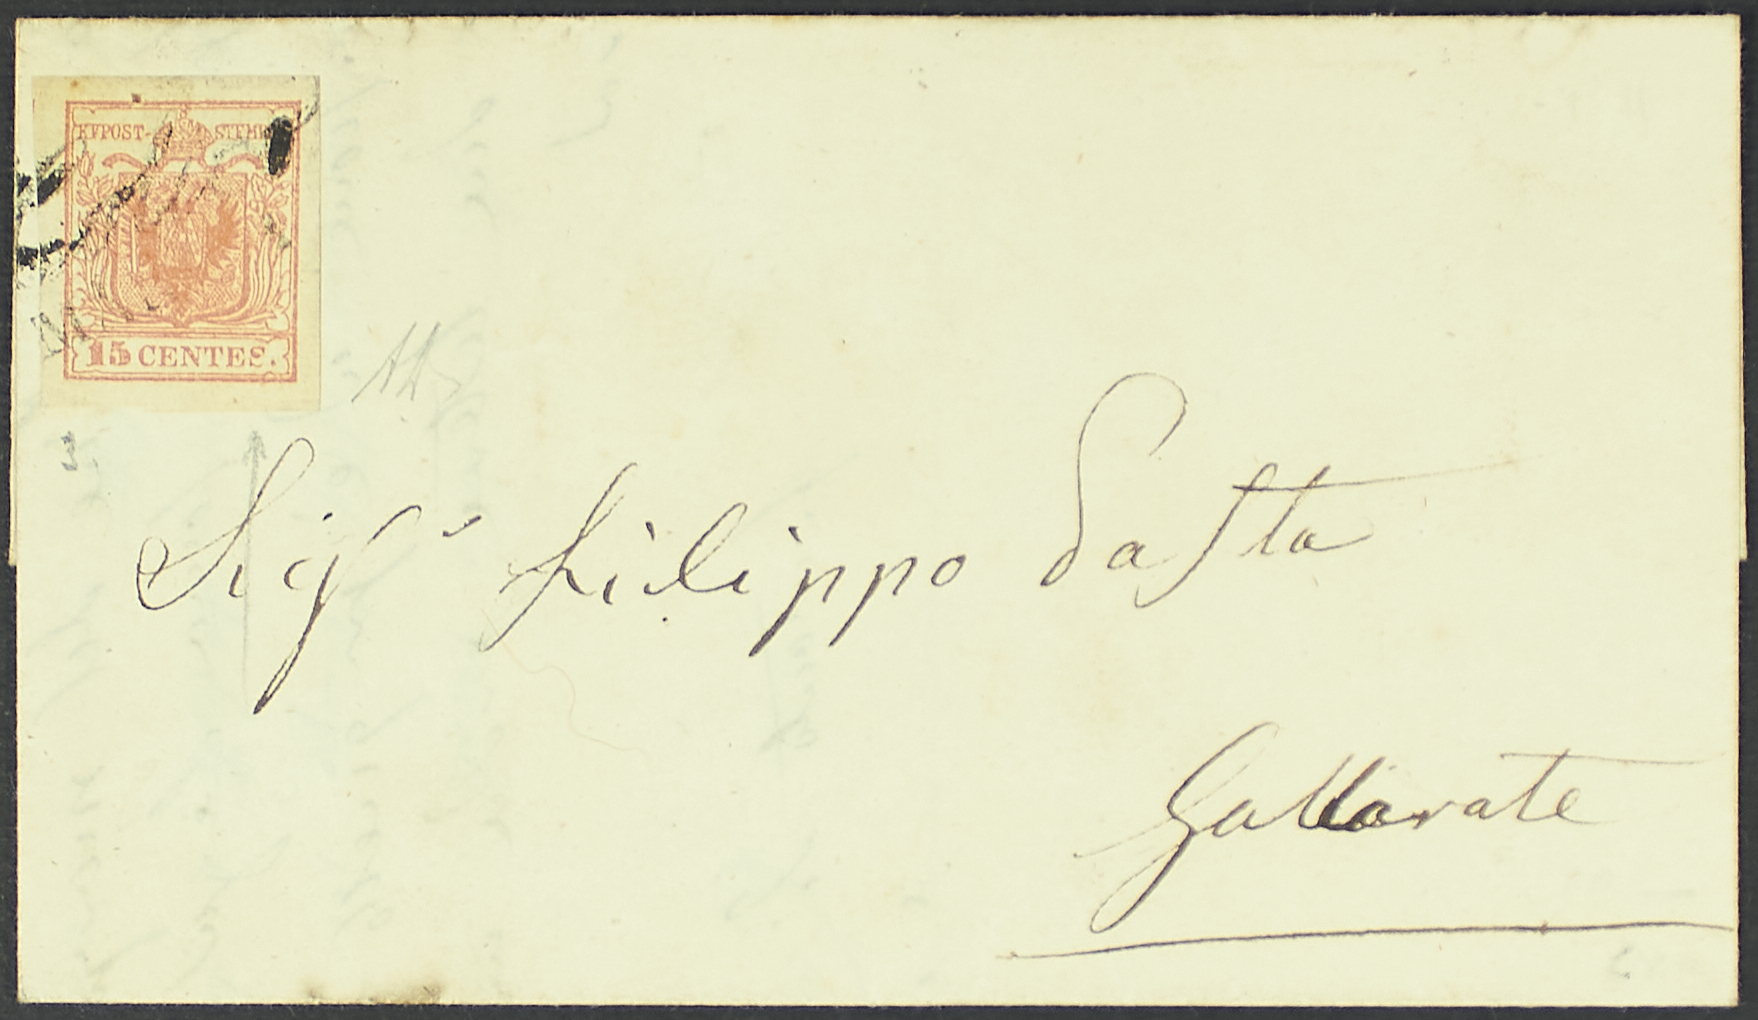 KKPOST-STEMPEL
15 CENTES.
Sigr Filippo Pasta
Gallarate